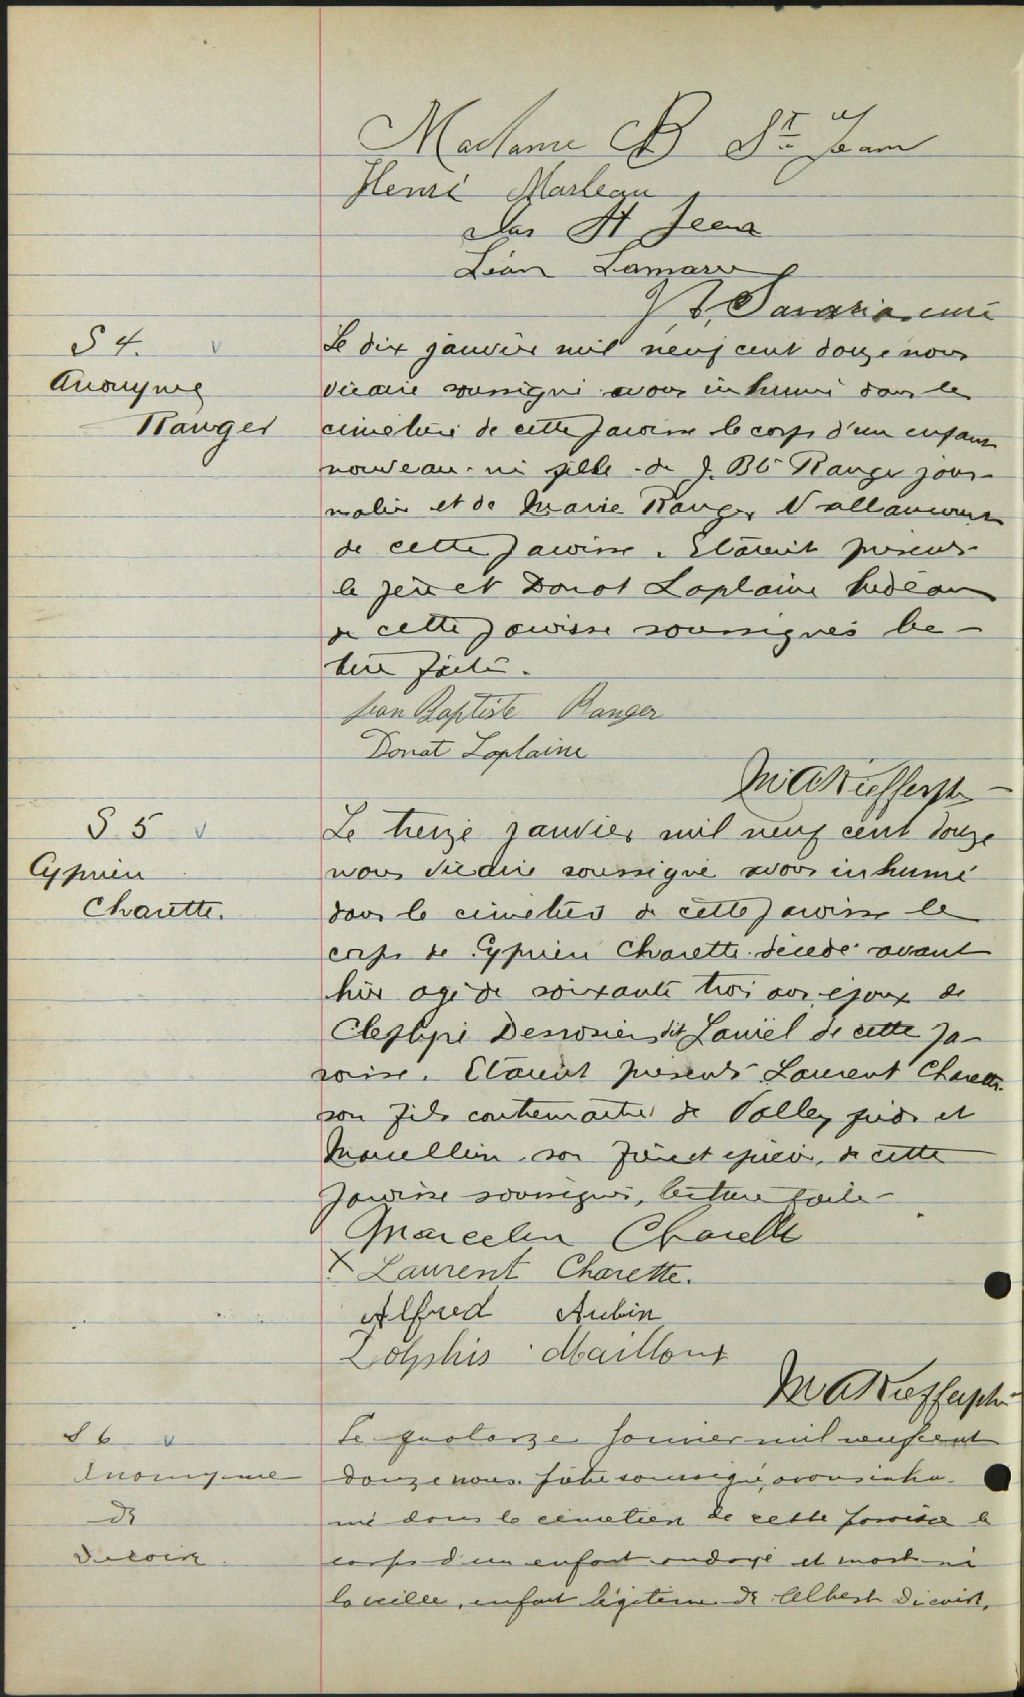 Madame B St Jean
Henri Marleau
St Jean
Léon Lamarre
Savaria curé
S 4.
Anonyme
Ranger
Le dix janvier mil neuf cent douze nous
vicaire soussigné avons inhumé dans le
cimetière de cette paroisse le corps d'un enfant
nouveau-né fille de J. Bte Ranger jour-
nalier et de Marie Ranger Vallancourt
de cette paroisse. Etaient présents
le père et Donat Laplaine bedeau
de cette paroisse soussignés lec-
ture faite.
Jean Baptiste Ranger
Donat Laplaine
M A Kieffer ptre
S 5
Cyprien
Charette.
Le treize janvier mil neuf cent douze
nous vicaire soussigné avons inhumé
dans le cimetière de cette paroisse le
corps de Cyprien Charette décédé avant
hier agé de soixante trois ans, époux de
Desrosiers dit Laniel de cette pa-
roisse. Etaient présents Laurent Charette
son fils contremaître de Valleyfield et
Marcellin son frère et de cette
paroisse soussignés, lecture faite-
Marcelin Charette
X Laurent Charette.
Alfred Aubin
Dolphis Mailloux
M A Kieffer ptre
S 6
Anonyme
de
Dicaire
Le quatorze janvier mil neuf cent
douze nous prêtre soussigné, avons inhu-
mé dans le cimetière de cette paroisse le
corps d'un enfant ondoyé et mort né
la veille, enfant légitime de Albert Dicaire,